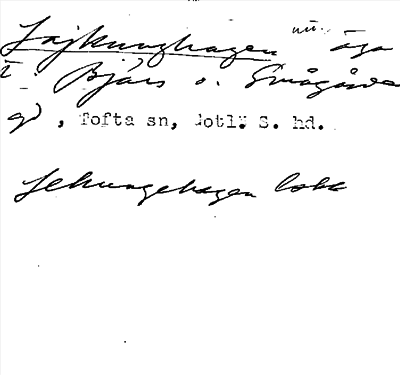 Lajkunghagen nu. äga
i Bjärs o. Smågårde
gd, Tofta sn, Gotl: S. hd.
Lekungehagen lokk